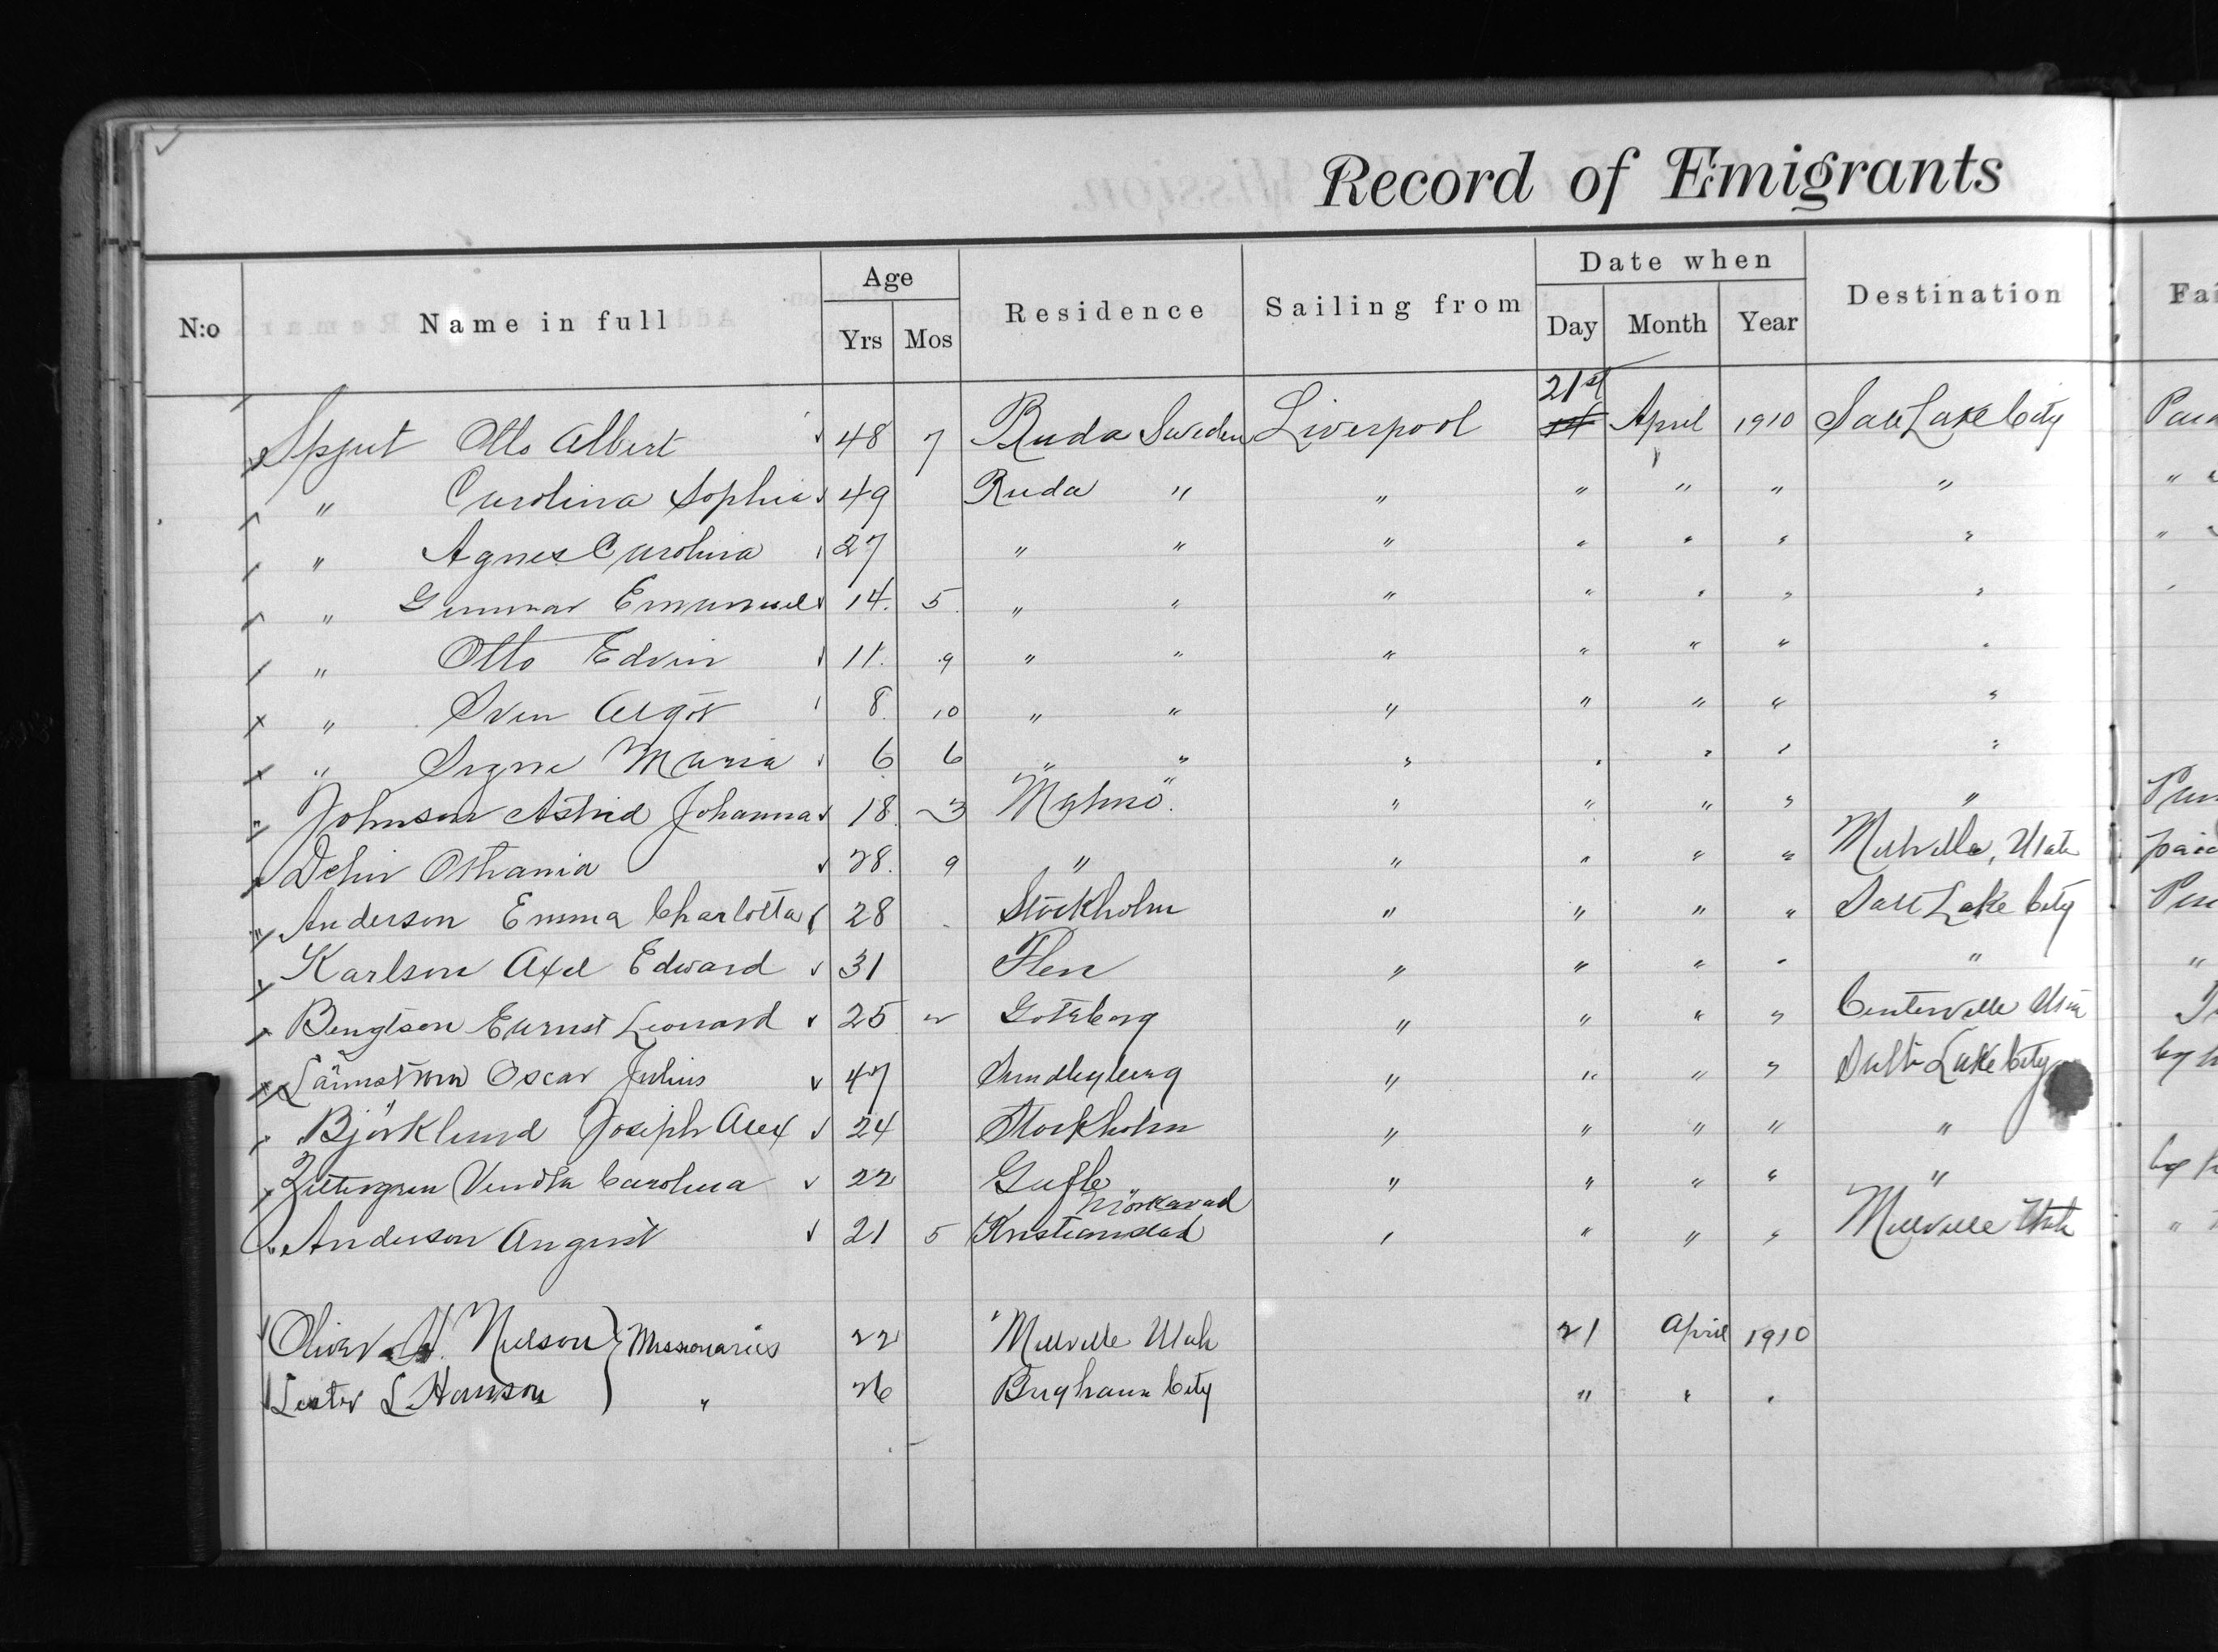 Record of Emigrants
N:o Name in full Age Residence Sailing from Date when Destination
Yrs Mos Day Month Year
21st
Spjut Otto Albert 48 7 Ruda Sweden Liverpool April 1910 Salt Lake City
" Carolina Sophia 49 Ruda " " " " " "
" Agnes Carolina 27 " " " " " " "
" Gunnar Emanuel 14. 5 " " " " " " "
" Otto Edvin 11. 9 " " " " " " "
" Sven 8. 10 " " " " " " "
" Signe Maria 6 6 " " " " " " "
Johnson Astrid Johanna 18 3 Malmö " " " " "
28. 9 " " " " " Millville, Utah
Anderson Emma Charlotta 28 Stockholm " " " " Salt Lake City
Karlson Axel Edward 31 Flen " " " " "
Bengtson Ernst Leonard 25 Goteborg " " " " Centerville Utah
Oscar Julius 47 Sundbyberg " " " " Salt Lake City
Björklund Joseph Alex 24 Stockholm " " " " "
Carolina 22 Gefle " " " " "
Anderson August 21 5 Kristianstad " " " " Millville Utah
Oliver H. Nielson } Missionaries 22 Millville Utah 21 April 1910
Lester L. Hanson } " 26 Brigham City " " "